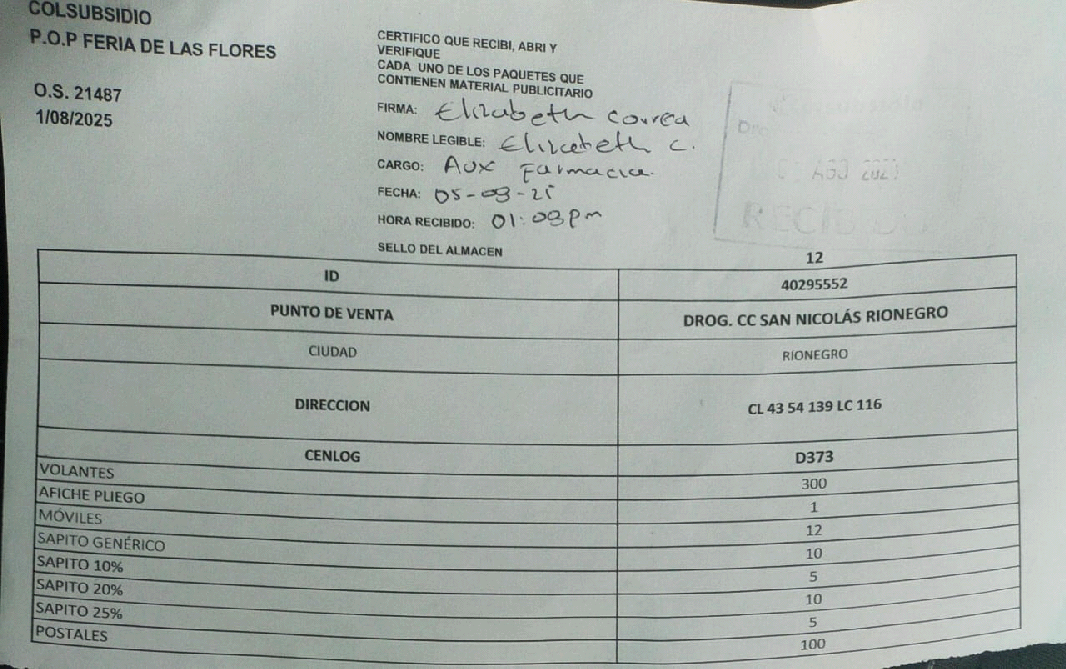 COLSUBSIDIO
P.O.P FERIA DE LAS FLORES
O.S. 21487
1/08/2025
CERTIFICO QUE RECIBI, ABRI Y
VERIFIQUE
CADA UNO DE LOS PAQUETES QUE
CONTIENEN MATERIAL PUBLICITARIO
FIRMA: Elizabeth Correa
NOMBRE LEGIBLE: Elizabeth C.
CARGO: Aux Farmacia.
FECHA: 05-08-25
HORA RECIBIDO: 01:08pm
SELLO DEL ALMACEN
AGO
12
ID 40295552
PUNTO DE VENTA DROG. CC SAN NICOLÁS RIONEGRO
CIUDAD RIONEGRO
DIRECCION CL 43 54 139 LC 116
CENLOG D373
VOLANTES 300
AFICHE PLIEGO 1
MÓVILES 12
SAPITO GENÉRICO 10
SAPITO 10% 5
SAPITO 20% 10
SAPITO 25% 5
POSTALES 100